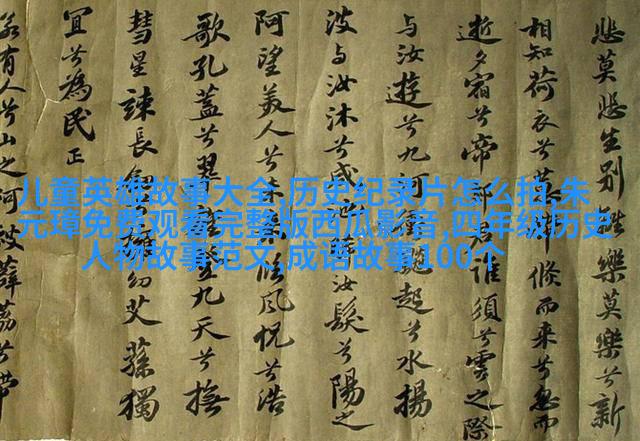 悲莫悲生别樂莫樂兮新
相知荷衣兮儵而來兮忽而
逝夕宿兮帝郊君誰須兮雲之際
与汝遊兮九起兮水揚
波与汝沐兮咸汝髮兮陽之
阿望美人兮臨風怳兮浩
歌孔蓋兮翠九天兮撫
彗星竦長劍幼艾蓀獨
宜兮為民正
若有人兮山之阿被薜荔兮帶
儿童英雄故事大全,历史纪录片怎么拍,朱
元璋免费观看完整版西瓜影音,四年级历史
人物故事范文,成语故事100个